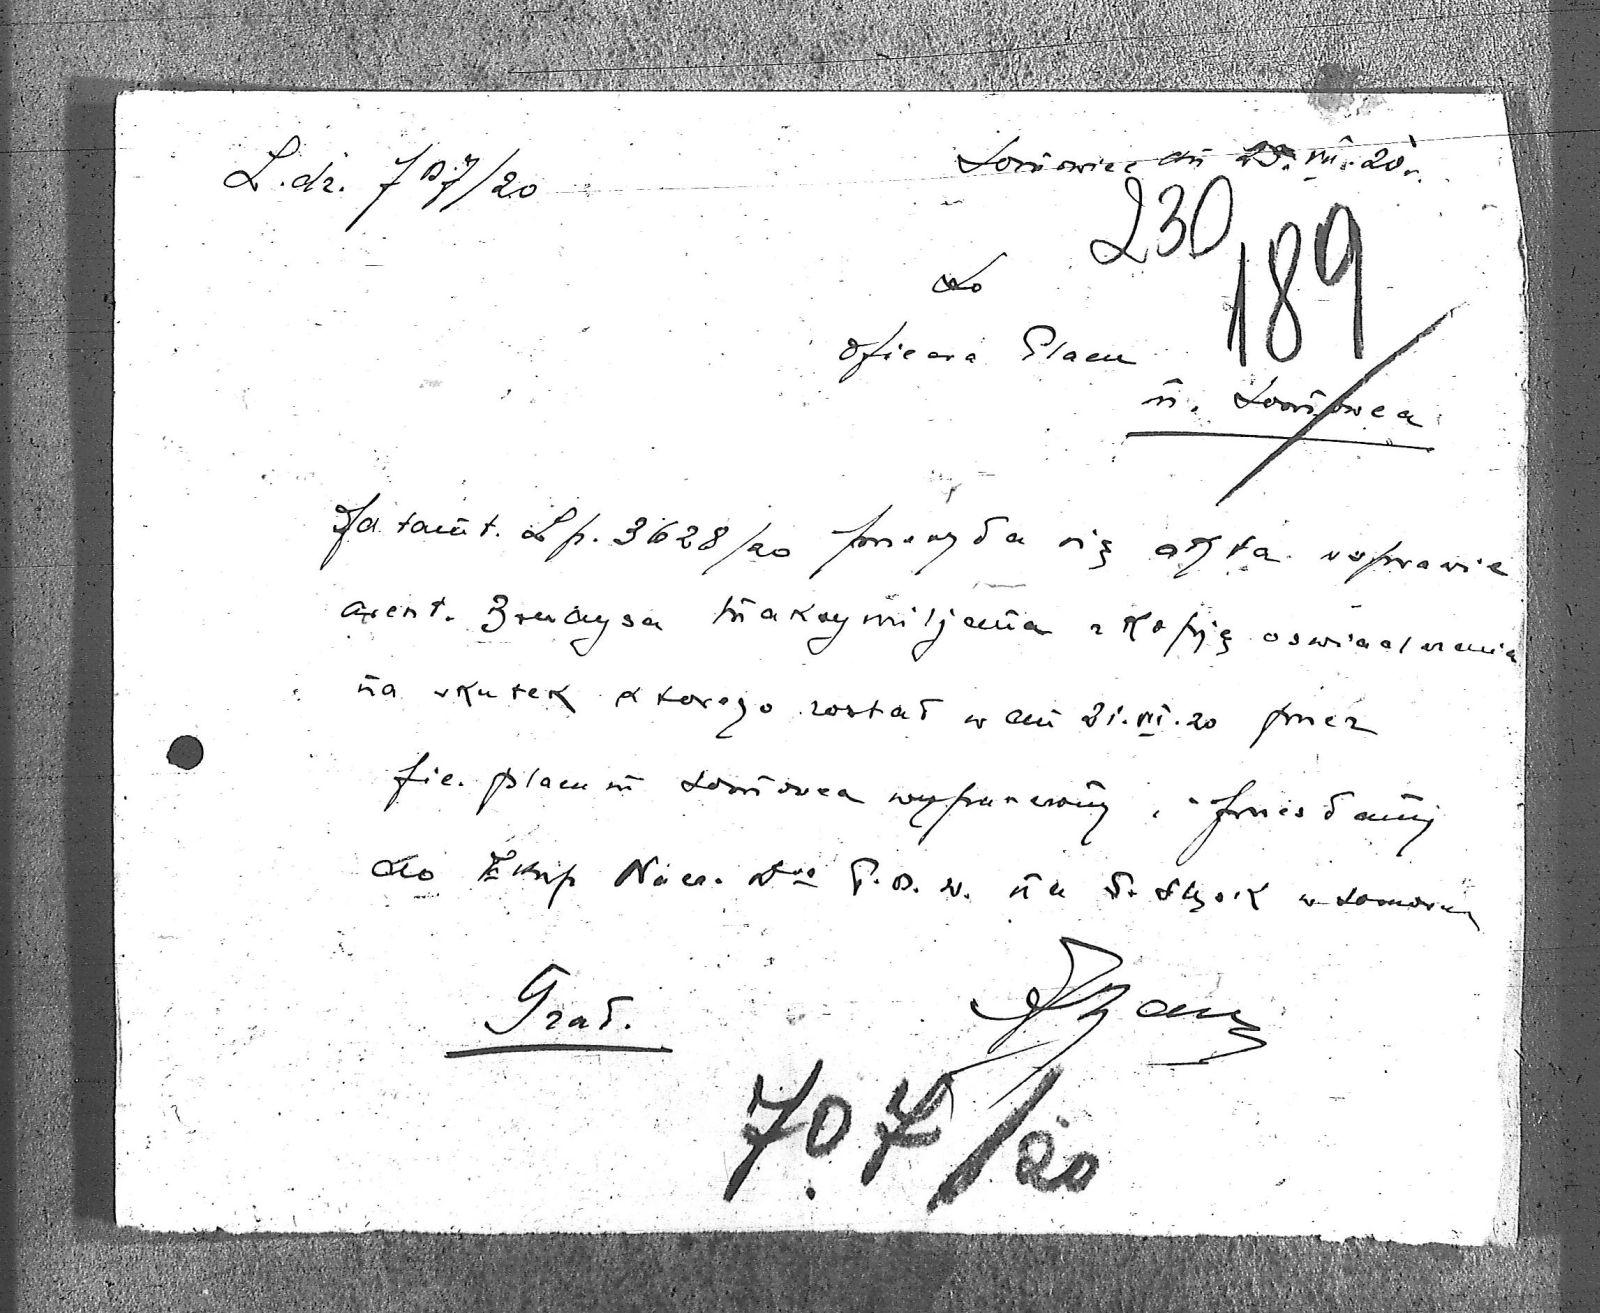 L.dz. 707/20
Sosnowiec dn 23. VII. 20 r.
230
189
Do
Oficera Placu
m. Sosnowca
Za tamt. Lp. 3628/20 przesyła się akta w sprawie
arent. Maksymiljana z kopją oświadczenia
na skutek ktorego został w dn 21. VII. 20 przez
fic. placu m Sosnowca wypuszczony i przesłany
do Eksp Nacz. Dtwa P.O.W. na G. Śląsk w Sosnowcu
Zał.
707/20